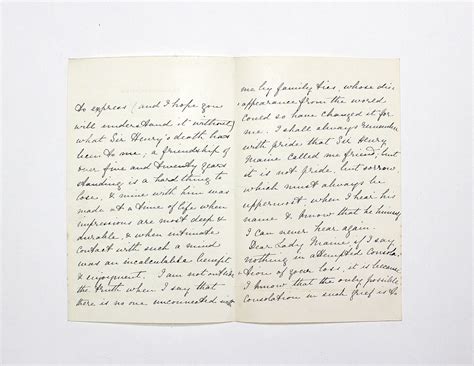 to express (and I hope you
will understand it without)
what Sir Henry's death has
been to me, a friendship of
over five and twenty years
standing is a hard thing to
lose, & mine with him was
made at a time of life when
impressions are most deep &
durable, & when intimate
contact with such a mind
was an incalculable benefit
& enjoyment. I am not outside
the truth when I say that
there is no one unconnected with
me by family ties, whose dis
appearance from the world
could so have changed it for
me. I shall always remember
with pride that Sir Henry
Maine called me friend, but
it is not pride, but sorrow
which must always be
uppermost when I hear his
name & know that he
I can never hear again.
Dear Lady Maine if I say
nothing in attempted consola
tion of your loss, it is because
I know that the only possible
consolation in such grief is to